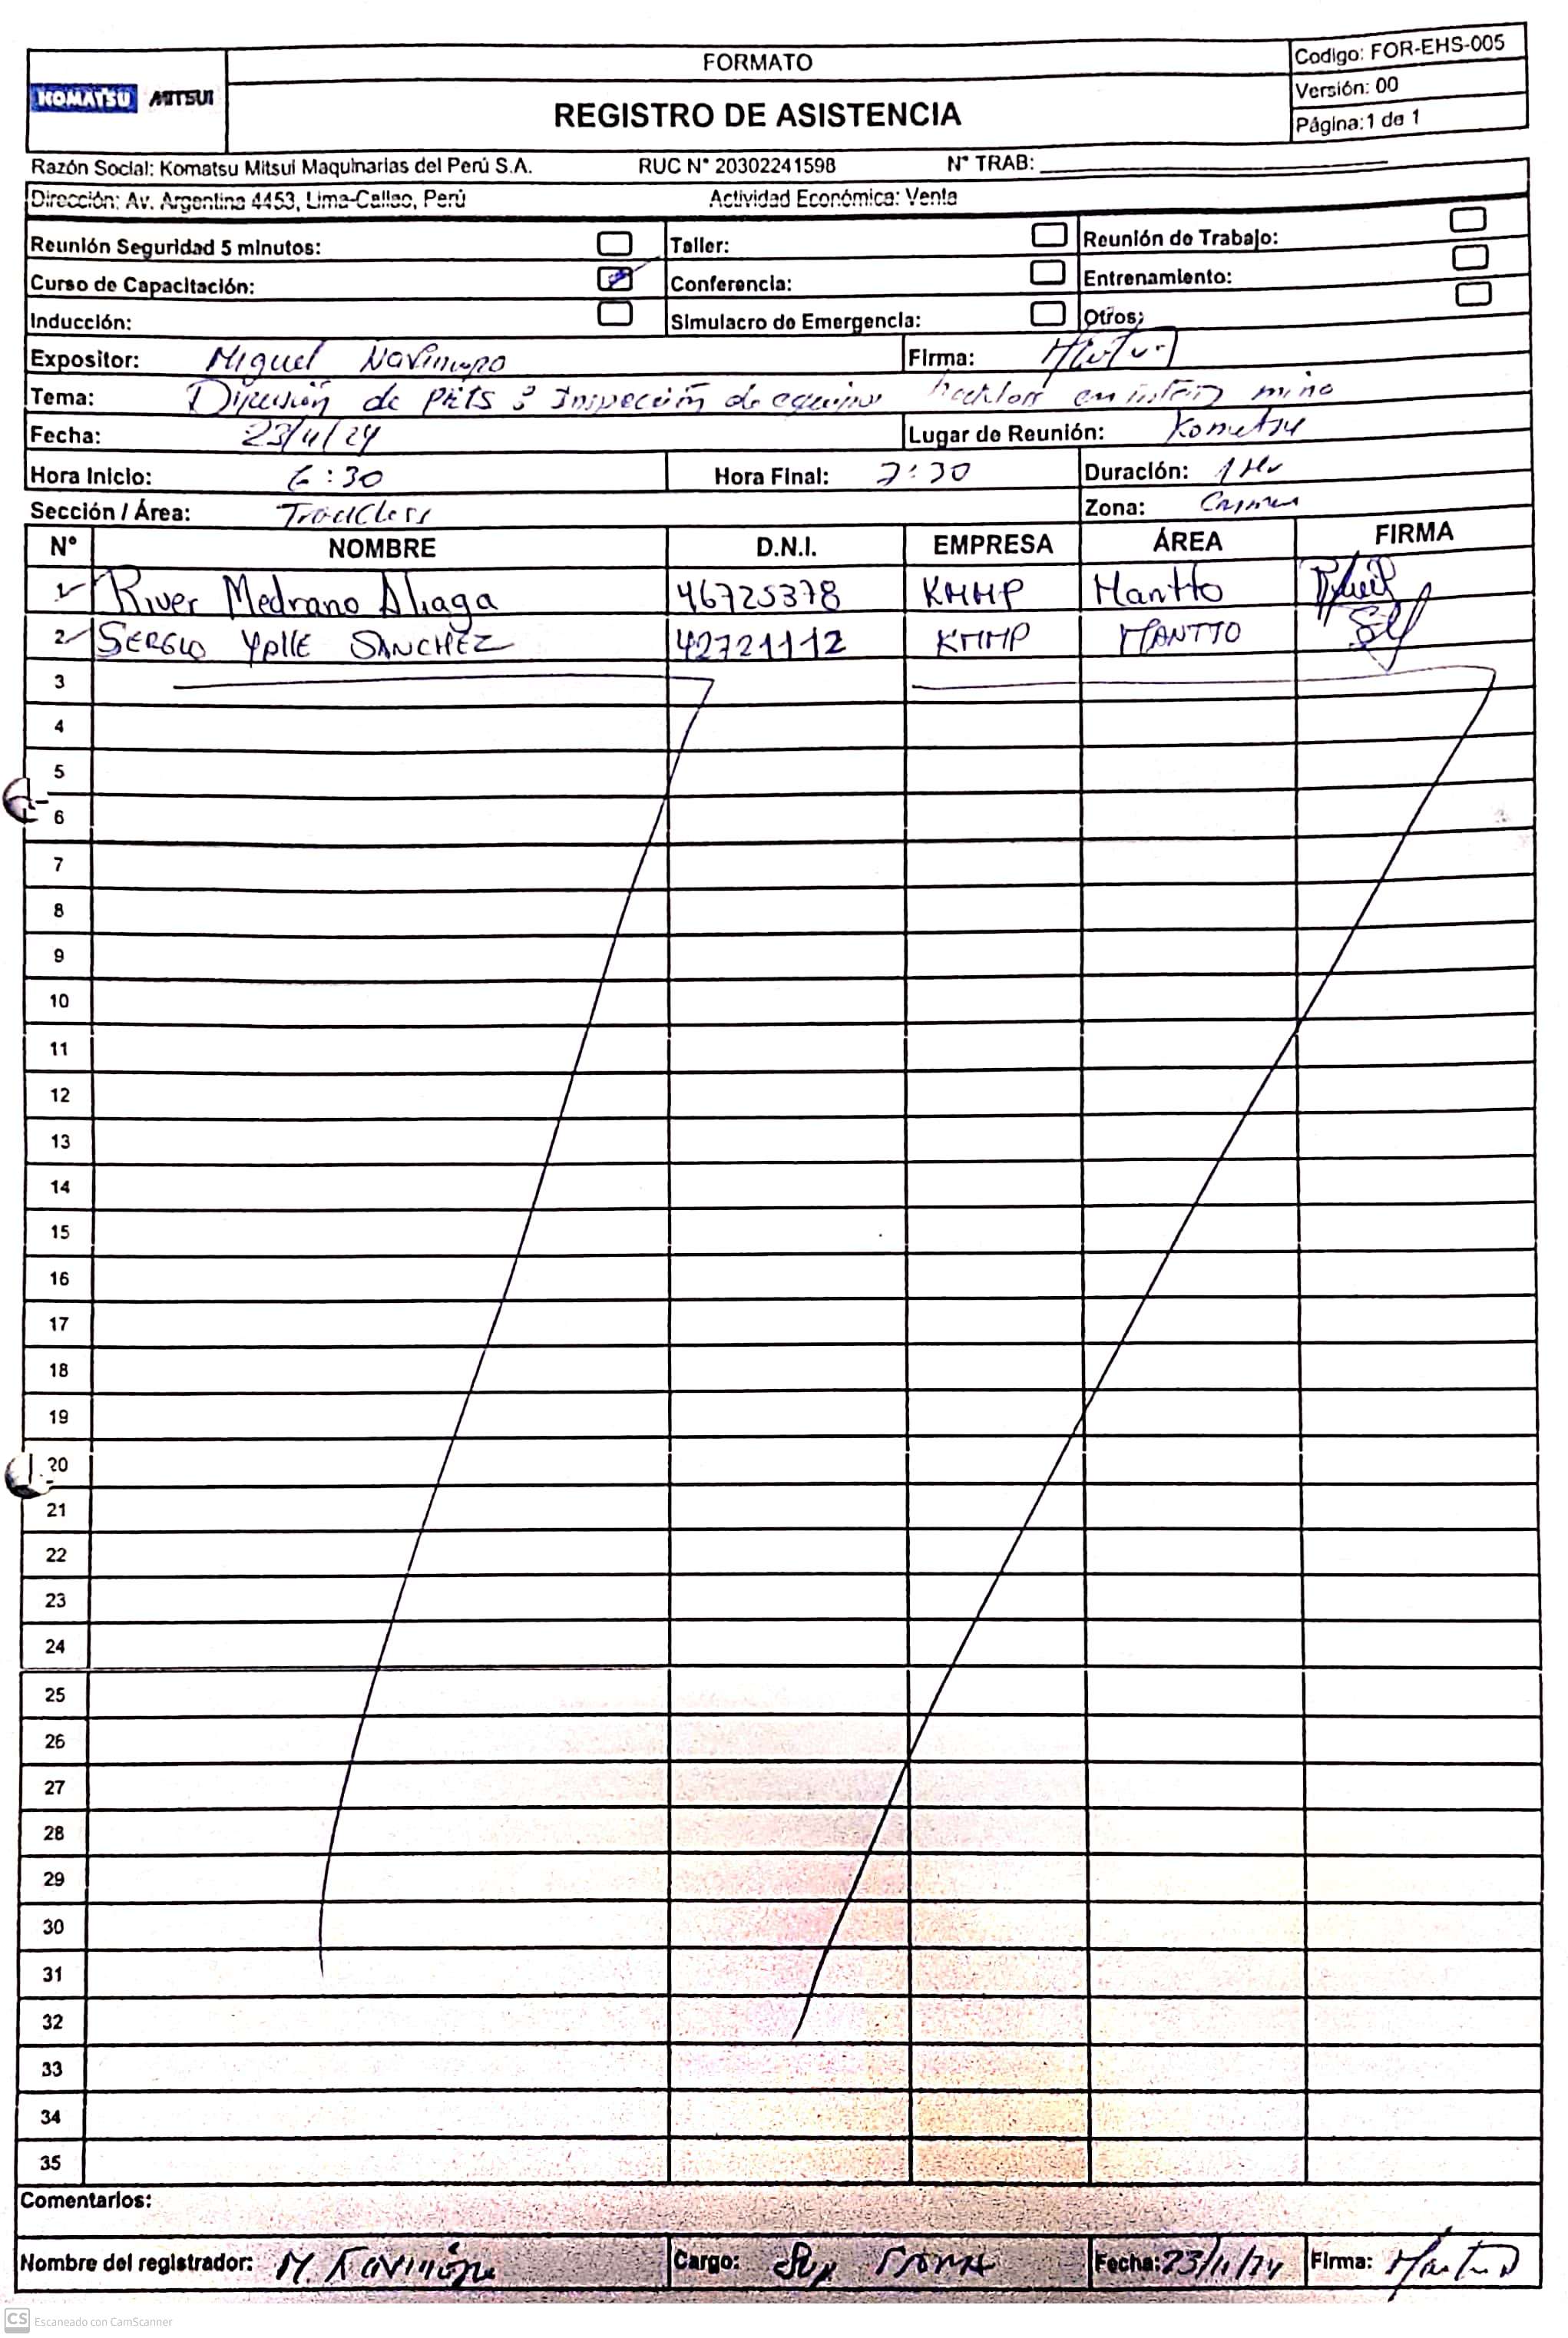 FORMATO
Codigo: FOR-EHS-005
KOMATSU MITSUI
REGISTRO DE ASISTENCIA
Versión: 00
Página: 1 de 1
Razón Social: Komatsu Mitsui Maquinarias del Perú S.A. RUC N° 20302241598 N° TRAB:
Dirección: Av. Argentina 4453, Lima-Callao, Perú Actividad Económica: Venta
Reunión Seguridad 5 minutos: Taller: Reunión de Trabajo:
Curso de Capacitación: Conferencia: Entrenamiento:
Inducción: Simulacro de Emergencia: Otros:
Expositor: Miguel Firma:
Tema: Difusión de PETS : Inspección de equipos en mina
Fecha: 23/11/24 Lugar de Reunión: Komatsu
Hora Inicio: 6:30 Hora Final: 7:30 Duración: 1 Hr
Sección / Área: Zona:
N° NOMBRE D.N.I. EMPRESA ÁREA FIRMA
1 River Medrano Aliaga 46725378 KMMP Mantto
2 SERGIO YALLE SANCHEZ 42721112 KMMP MANTTO
3
4
5
6
7
8
9
10
11
12
13
14
15
16
17
18
19
20
21
22
23
24
25
26
27
28
29
30
31
32
33
34
35
Comentarios:
Nombre del registrador: M. Cargo: Sup Fecha: 23/11/24 Firma:
CS Escaneado con CamScanner